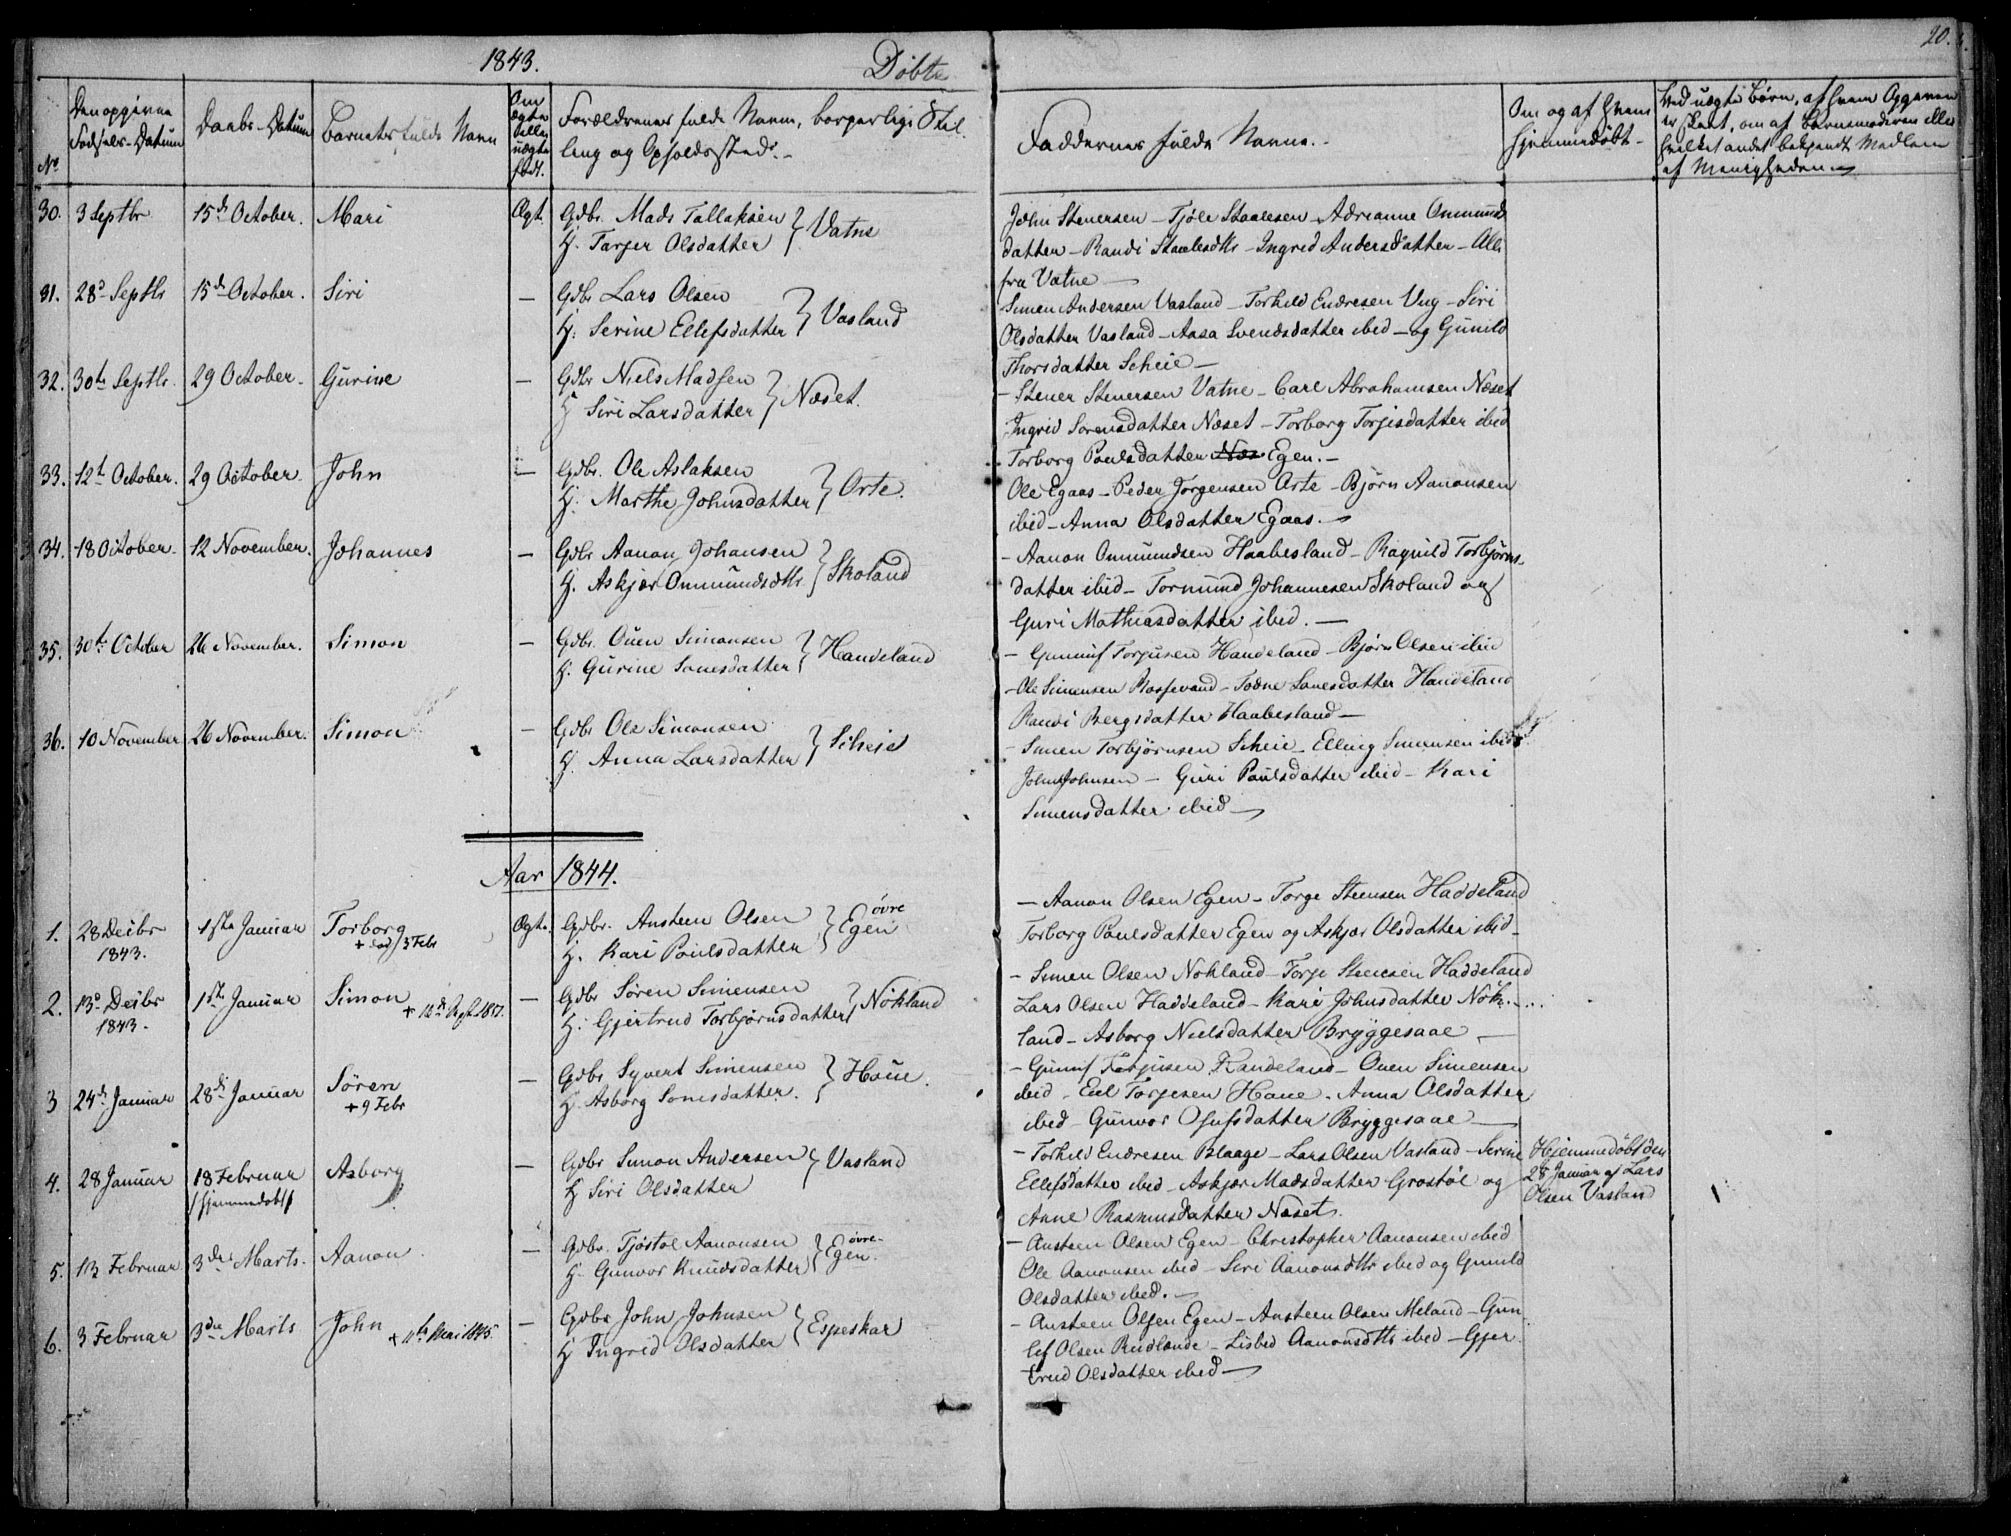 1843.
Døbte
20.
No
Den opgivne Fødsels-Datum
Daabs-Datum
Barnets fulde Navn
Om ægte eller uægte født.
Forældrenes fulde Navn, borgerlige Stilling og Opholdssted.
Faddernes fulde Navne.
Om og af hvem hjemmedøbt
Ved uægte Børn, af hvem Opgaven er skeet, om af Barnemoderen eller hvilket andet bekjendt Medlem af Menigheden
30. 3 Septbr 15de October. Mari Ægt. Gdbr. Mads Tallaksen
H. Tarjer Olsdatter } Vatne
John Stenersen - Tjøle Staalesen - Adrianne Onmunds
datter - Randi Staalesdtr - Ingrid Andersdatter - Alle
fra Vatne -
31. 28de Septbr 15de October. Siri - Gdbr Lars Olsen
H. Serine Ellefsdatter } Vasland
Simen Andersen Vasland - Torkild Endresen Ung - Siri
Olsdatter Vasland - Aasa Svendsdatter ibid - og Gunild
Thorsdatter Scheie -
32. 30te Septbr. 29 October. Gurine - Gdbr Niels Madsen
H Siri Larsdatter } Næset.
- Stener Stenersen Vatne - Carl Abrahamsen Næset
Ingrid Sorensdatter Næset - Torborg Torjisdatter ibid
Torborg Poulsdatter Næs Egen. -
33. 12te October. 29 October. John - Gdbr. Ole Aslaksen
H. Marthe Johnsdatter } Orte.
Ole Egaas - Peder Jørgensen Orte - Bjørn Aanonsen
ibid - Anna Olsdatter Egaas. -
34. 18 October. 12 November. Johannes - Gdbr Aanon Johansen
H. Askjær Onmundsdtr. } Skoland
- Aanon Onmundsen Haabesland - Ragnild Torbjørns
datter ibid - Tormund Johannesen Skoland og
Guri Mathiasdatter ibid. -
35. 30te October 26 November. Simon - Gdbr. Ouen Simonsen
H. Gurine Sonesdatter } Handeland
- Gunnuf Torjusen Handeland - Bjørn Olsen ibid
- Ole Simensen Rossevand - Todne Sonesdatter Handeland
Randi Bergsdatter Haabesland -
36. 10 November 26 November. Simon - Gdbr Ole Simonsen
H. Anna Larsdatter } Scheie
- Simen Torbjørnsen Scheie - Elling Simensen ibid
John Johnsen - Guri Poulsdatter ibid - Kari
Simensdatter ibid -
Aar 1844.
1. 28 Decbr 1843. 1ste Januar Torborg + død 3 Febr Ægte. Gdbr. Austeen Olsen
H. Kari Poulsdatter } Egen øvre
- Aanon Olsen Egen - Torge Steensen Haddeland
Torborg Poulsdatter Egen og Askjær Olsdatter ibid -
2. 13de Decbr 1843. 1ste Januar Simon - Gdbr Søren Simensen
H. Gjertrud Torbjørnsdatter } Nökland
- Simen Olsen Nokland - Torje Steensen Haddeland
Lars Olsen Haddeland - Kari Johnsdatter Nök-
land - Asborg Nielsdatter Bryggesaae -
3 24de Januar 28de Januar Søren + 9 Febr - Gdbr Syvert Simensen
H. Asborg Sonesdatter. } Houe.
- Gunuf Torjusen Handeland - Ouen Simensen
ibid - Eul Torjesen Houe. Anna Olsdatter
ibid - Gunvor Osufsdatter Bryggesaae -
4. 28 Januar 18 Februar /hjemmedøbt/ Asborg - Gdbr Simon Andersen
H Siri Olsdatter } Vasland
- Torkild Endresen Blaage - Lars Olsen Vasland - Serine
Ellefsdatter ibid - Askjær Madsdatter Grostøl og
Anne Rasmusdatter Næset.
Hjemmedøbt den
28 Januar af Lars
Olsen Vasland
5. 13 Februar 3die Marts. Aanon - Gdbr. Tjøstol Aanonsen
H. Gunvor Knudsdatter } Egen øvre
- Austeen Olsen Egen - Christopher Aanonsen ibid
Ole Aanonsen ibid - Siri Aanonsdtr ibid og Gunild
Olsdatter ibid. -
6. 3 Februar 3die Marts John + 11te Mai 1845. - Gdbr John Johnsen
H Ingrid Olsdatter } Espeskar
- Austeen Olsen Egen - Austeen Olsen Meland - Gun
lef Olsen Rudlande - Lisbed Aanonsdtr ibid - Gjer
trud Olsdatter ibid -